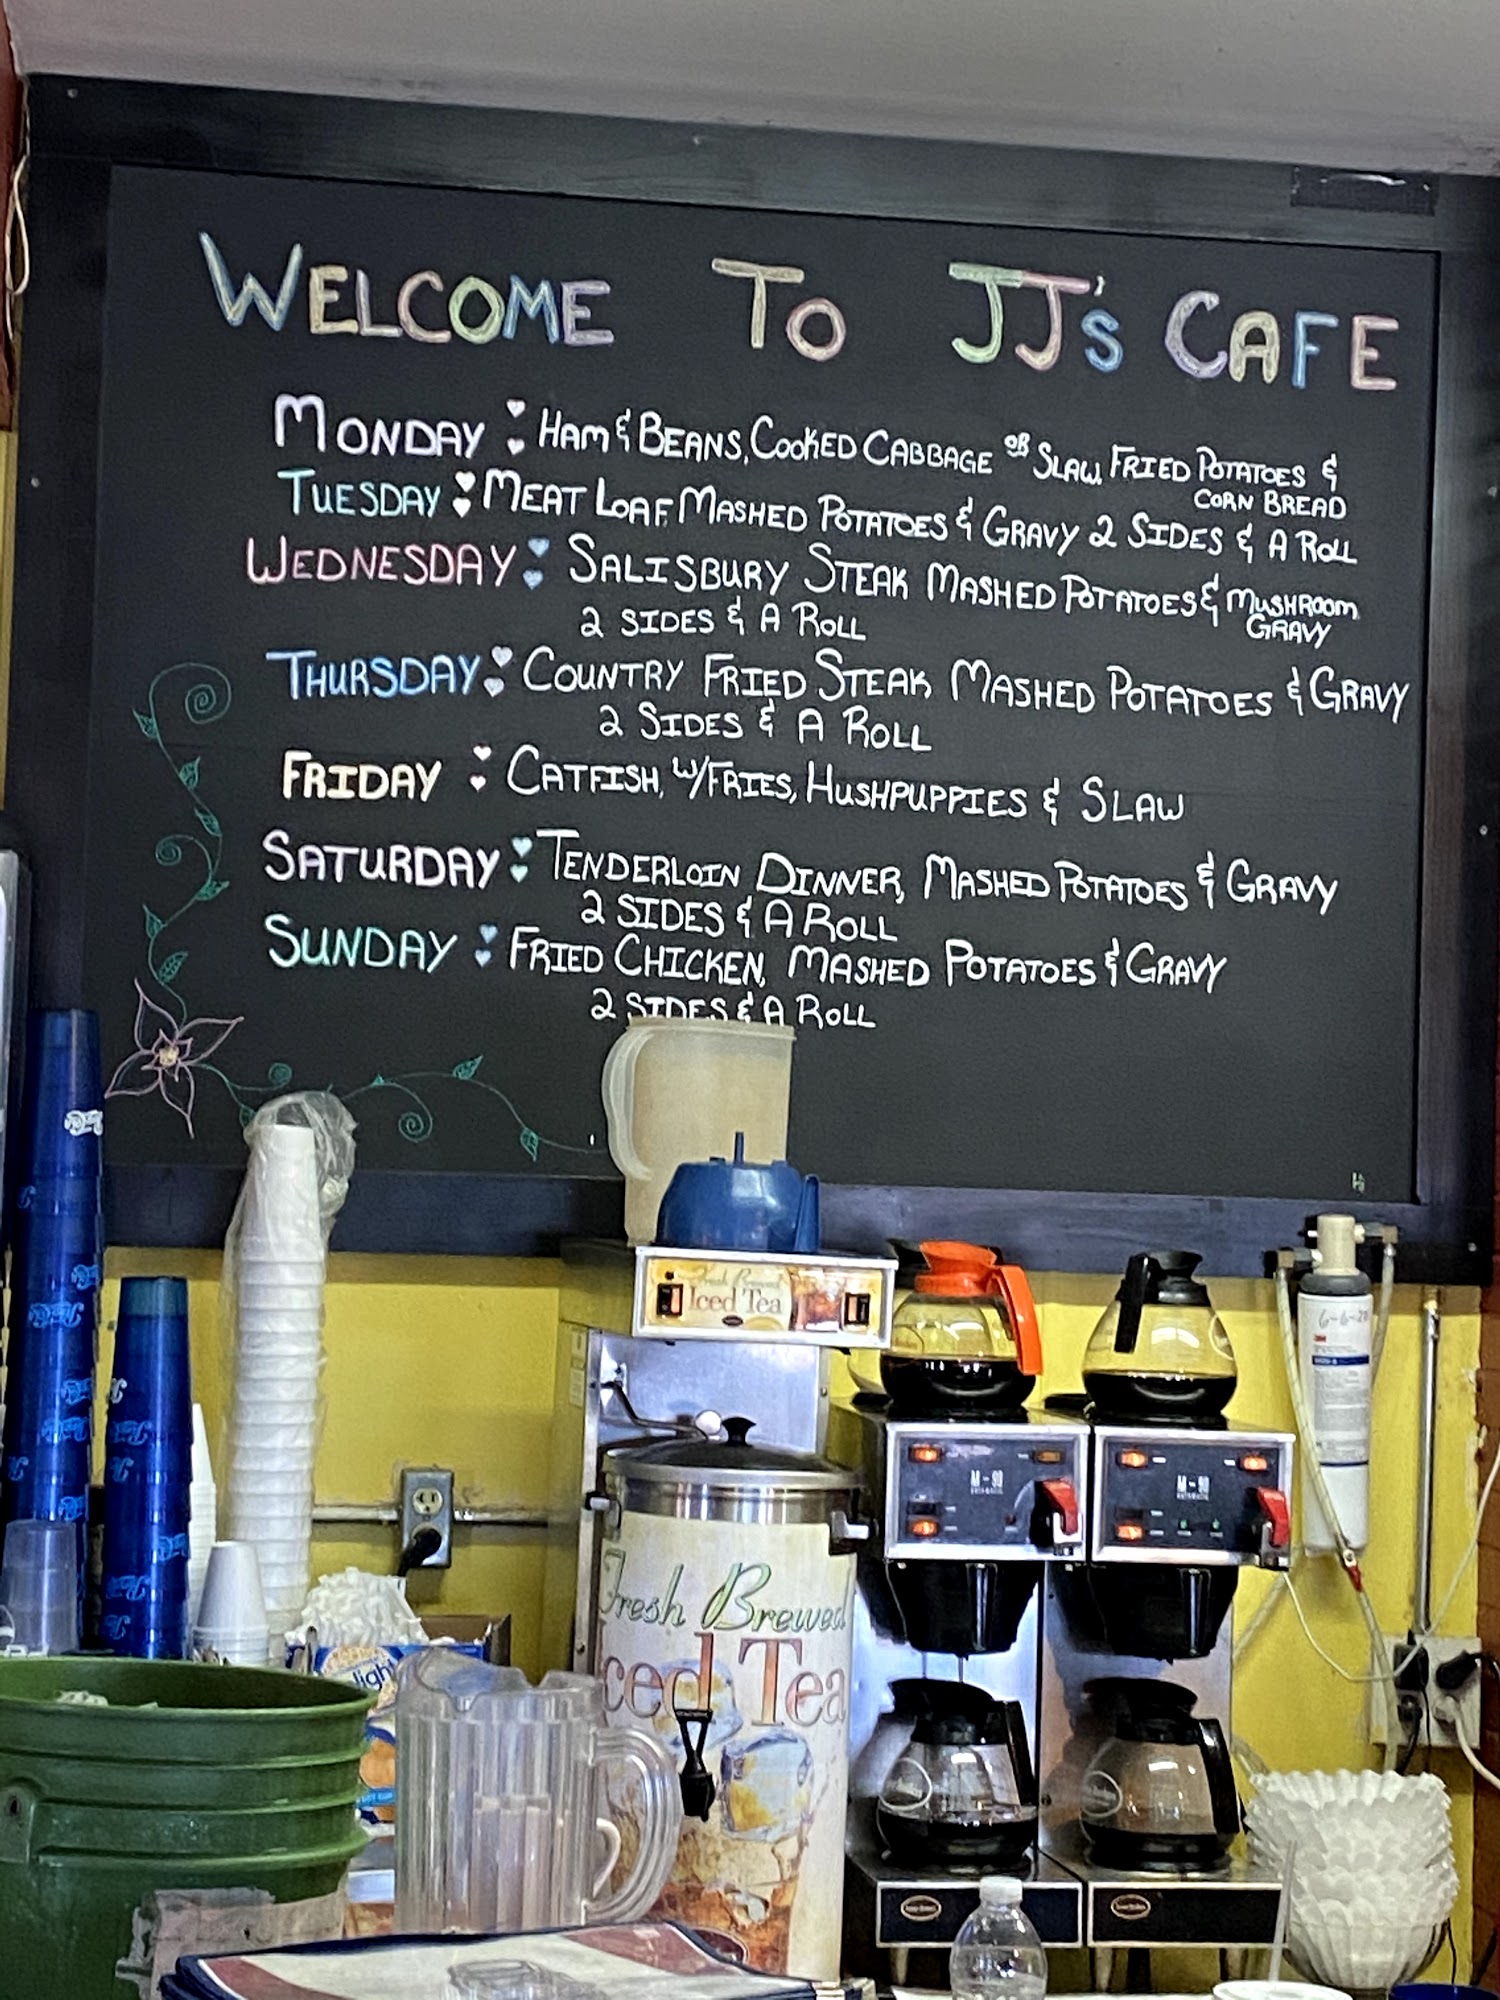 WELCOME TO JJ's CAFE
MONDAY HAM & BEANS, COOKED CABBAGE OR SLAW, FRIED POTATOES &
CORN BREAD
TUESDAY MEAT LOAF, MASHED POTATOES & GRAVY 2 SIDES & A ROLL
WEDNESDAY SALISBURY STEAK MASHED POTATOES & MUSHROOM
GRAVY
2 SIDES & A ROLL
THURSDAY COUNTRY FRIED STEAK, MASHED POTATOES & GRAVY
2 SIDES & A ROLL
FRIDAY CATFISH, W/FRIES, HUSHPUPPIES & SLAW
SATURDAY TENDERLOIN DINNER, MASHED POTATOES & GRAVY
2 SIDES & A ROLL
SUNDAY FRIED CHICKEN, MASHED POTATOES & GRAVY
2 SIDES & A ROLL
Fresh Brewed
Iced Tea
3M
M-90
M-90
Fresh Brewed
Iced Tea
light